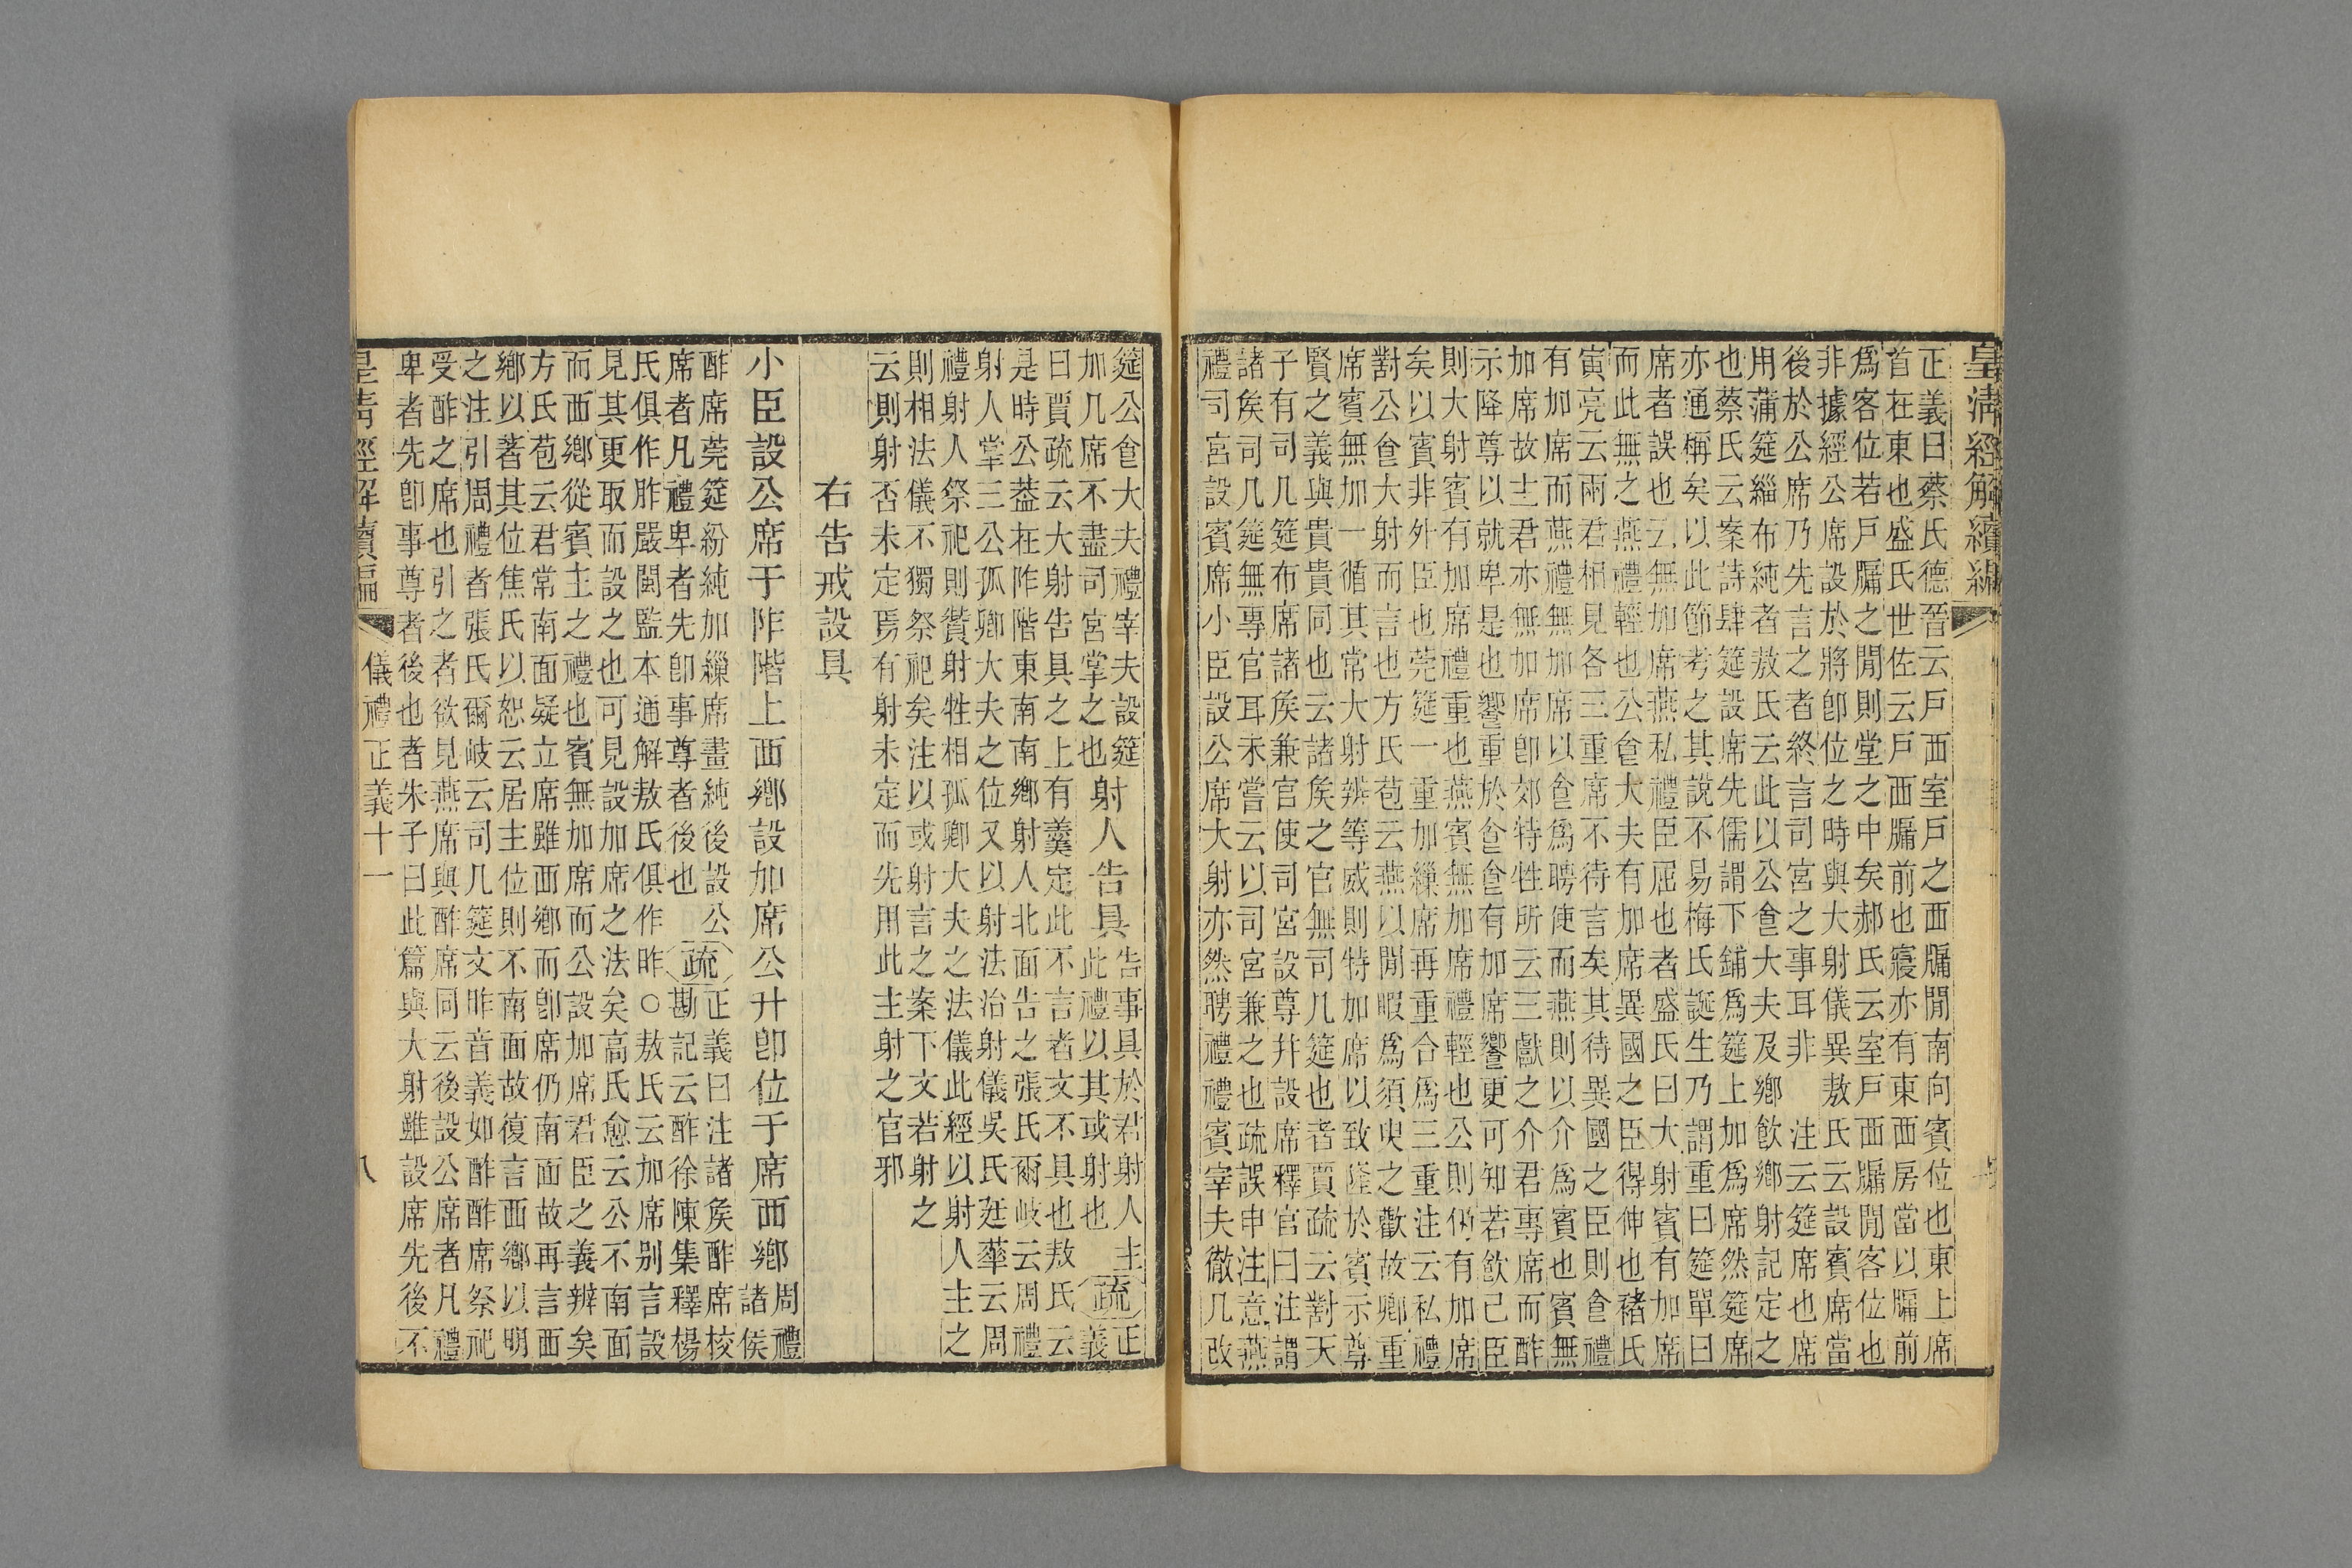 皇清經解續編
正義曰蔡氏德晉云戶西室戶之西牖閒南向賓位也東上席
首在東也盛氏世佐云戶西牖前也寢亦有東西房當以牖前
爲客位若戶牖之閒則堂之中矣郝氏云室戶西牖閒客位也
非據經公席設於將卽位之時與大射儀異敖氏云設賓席當
後於公席乃先言之者終言司宮之事耳非 注云筵席也席
用蒲筵緇布純者敖氏云此以公食大夫及鄉飲鄉射記定之
也蔡氏云案詩肆筵設席先儒謂下鋪爲筵上加爲席然筵席
亦通稱矣以此節考之其說不易梅氏誕生乃謂重曰筵單曰
席者誤也云無加席燕私禮臣屈也者盛氏曰大射賓有加席
而此無之燕禮輕也公食大夫有加席異國之臣得伸也褚氏
寅亮云兩君相見各三重席不待言矣其待異國之臣則食禮
有加席而燕禮無加席以食爲聘使而燕則以介爲賓也賓無
加席故主君亦無加席卽郊特牲所云三獻之介君專席而酢
示降尊以就卑是也饗重於食食有加席饗更可知若飲己臣
則大射賓有加席禮重也燕賓無加席禮輕也公則仍有加席
矣以賓非外臣也莞筵一重加繅席再重合爲三重注云私禮
對公食大射而言也方氏苞云燕以閒暇爲須臾之歡故卿重
席賓無加一循其常大射辨等威則特加席以致隆於賓示尊
賢之義與貴貴同也云諸侯之官無司几筵也者賈疏云對天
子有司几筵布席諸侯兼官使司宮設尊幷設席釋官曰注謂
諸侯司几筵無專官耳未嘗云以司宮兼之也疏誤申注意燕
禮司宮設賓席小臣設公席大射亦然聘禮禮賓宰夫徹几改
筵公食大夫禮宰夫設筵
加几席不盡司宮掌之也射人告具告事具於君射人主
此禮以其或射也疏正義
曰賈疏云大射告具之上有羹定此不言者文不具也敖氏云
是時公葢在阼階東南南鄉射人北面告之張氏爾岐云周禮
射人掌三公孤卿大夫之位又以射法治射儀吳氏廷華云周
禮射人祭祀則贊射牲相孤卿大夫之法儀此經以射人主之
則相法儀不獨祭祀矣注以或射言之案下文若射之
云則射否未定焉有射未定而先用此主射之官邪
右告戒設具
小臣設公席于阼階上西鄉設加席公升卽位于席西鄉周禮
諸侯
酢席莞筵紛純加繅席畫純後設公
席者凡禮卑者先卽事尊者後也疏正義曰注諸侯酢席校
勘記云酢徐陳集釋楊
氏俱作胙嚴閩監本通解敖氏俱作昨○敖氏云加席別言設
見其更取而設之也可見設加席之法矣高氏愈云公不南面
而西鄉從賓主之禮也賓無加席而公設加席君臣之義辨矣
方氏苞云君常南面疑立席雖西鄉而卽席仍南面故再言西
鄉以著其位焦氏以恕云居主位則不南面故復言西鄉以明
之注引周禮者張氏爾岐云司几筵文昨音義如酢酢席祭祀
受酢之席也引之者欲見燕席與酢席同云後設公席者凡禮
卑者先卽事尊者後也者朱子曰此篇與大射雖設席先後不
皇清經解續編 儀禮正義十一 八